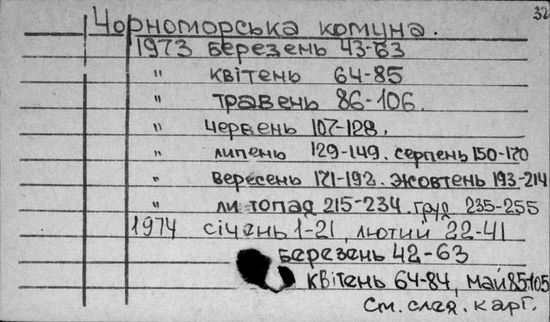 32
Чорноморська комуна.
1973 березень 43-63
" квітень 64-85
" травень 86-106.
" червень 107-128.
" липень 129-149. серпень 150-170
" вересень 171-192. жовтень 193-214
" листопад 215-234. груд 235-255
1974 січень 1-21, лютий 22-41
березень 42-63
квітень 64-84, май 85-105
См. след. карт.